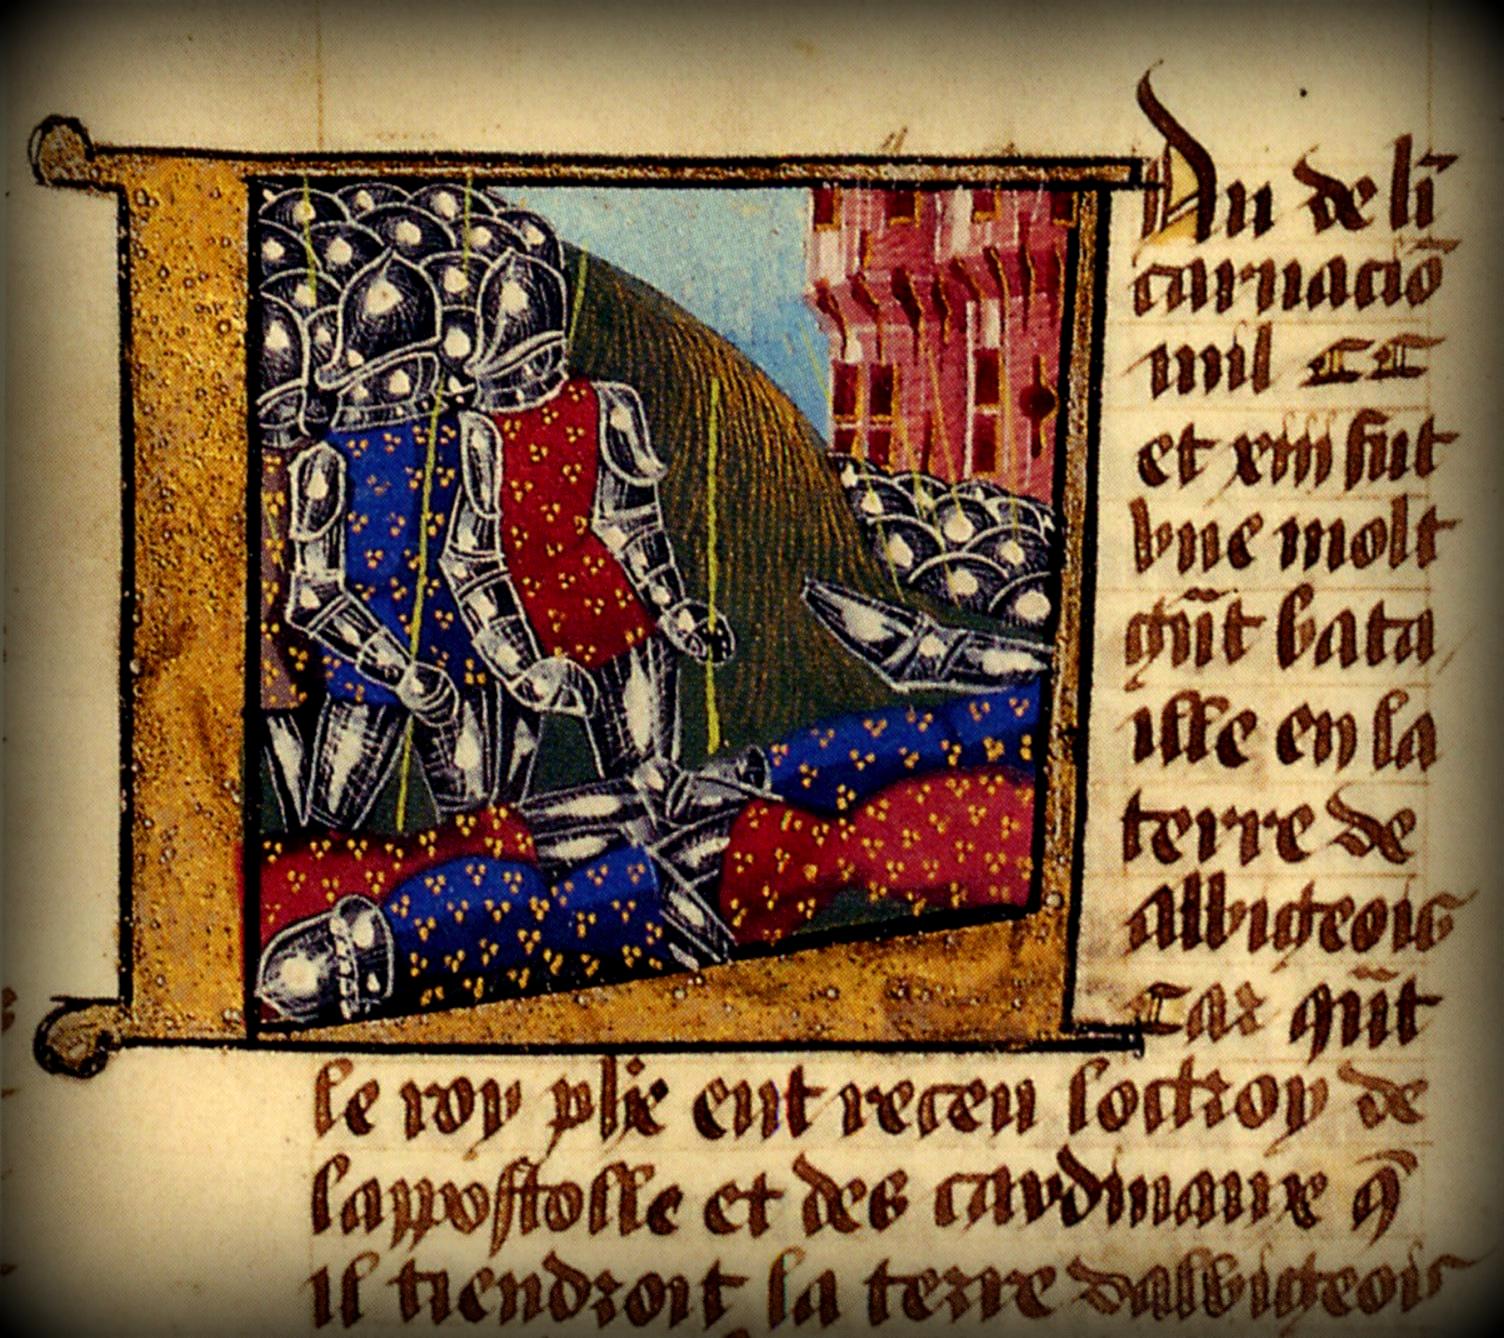 An de li
carnaciō
mil CC
et xiii fut
vne molt
gn̄t bata
ille en la
terre de
albigeois
Car qn̄t
le roy ph̄e eut receu loctroy de
lappostolle et des cardinaulx q̄
il tiendroit la terre dalbigeois